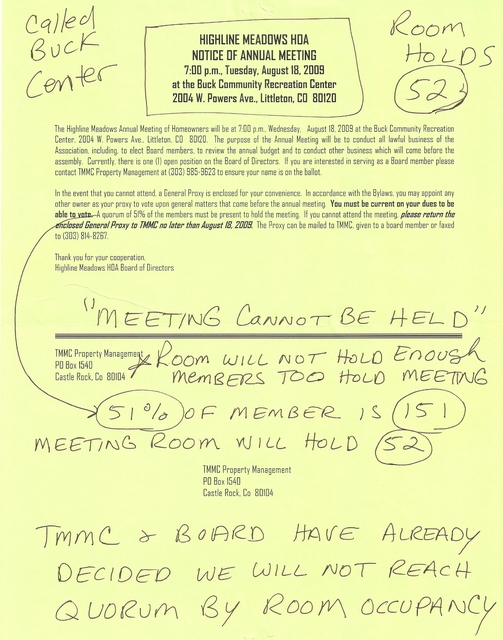 Called
Buck
Center
Room
HOLDS
52
HIGHLINE MEADOWS HOA
NOTICE OF ANNUAL MEETING
7:00 p.m., Tuesday, August 18, 2009
at the Buck Community Recreation Center
2004 W. Powers Ave., Littleton, CO 80120
The Highline Meadows Annual Meeting of Homeowners will be at 7:00 p.m., Wednesday, August 18, 2009 at the Buck Community Recreation
Center, 2004 W. Powers Ave., Littleton, CO 80120. The purpose of the Annual Meeting will be to conduct all lawful business of the
Association, including, to elect Board members, to review the annual budget and to conduct other business which will come before the
assembly. Currently, there is one (1) open position on the Board of Directors. If you are interested in serving as a Board member please
contact TMMC Property Management at (303) 985-9623 to ensure your name is on the ballot.
In the event that you cannot attend, a General Proxy is enclosed for your convenience. In accordance with the Bylaws, you may appoint any
other owner as your proxy to vote upon general matters that come before the annual meeting. You must be current on your dues to be
able to vote. A quorum of 51% of the members must be present to hold the meeting. If you cannot attend the meeting, please return the
enclosed General Proxy to TMMC no later than August 18, 2009. The Proxy can be mailed to TMMC, given to a board member or faxed
to (303) 814-8267.
Thank you for your cooperation.
Highline Meadows HOA Board of Directors
"MEETING CANNOT BE HELD"
TMMC Property Management
PO Box 1540
Castle Rock, Co 80104
ROOM WILL NOT HOLD ENOUGH
MEMBERS TOO HOLD MEETING
51% OF MEMBER IS 151
MEETING ROOM WILL HOLD 52
TMMC Property Management
PO Box 1540
Castle Rock, Co 80104
TMMC & BOARD HAVE ALREADY
DECIDED WE WILL NOT REACH
QUORUM BY ROOM OCCUPANCY